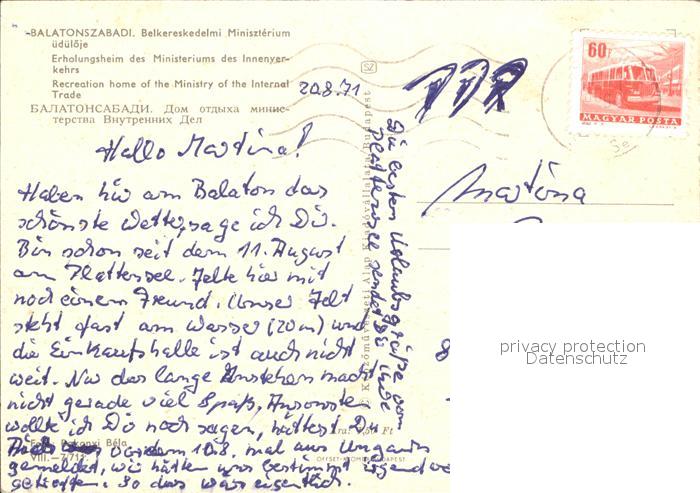 -BALATONSZABADI. Belkereskedelmi Minisztérium
üdülője
Erholungsheim des Ministeriums des Innenver-
kehrs
Recreation home of the Ministry of the Internal
Trade
БАЛАТОНСАБАДИ. Дом отдыха минис-
терства Внутренних Дел
20.8.71
SZ
DDR
60f
MAGYAR POSTA
Hallo Martina!
Haben hier am Balaton das
schönste Wetter, sage ich Dir.
Bin schon seit dem 11. August
am Plattensee. Zelte hier mit
noch einem Freund. Unser Zelt
steht fast am Wasser (20m) und
die Einkaufshalle ist auch nicht
weit. Nur das lange Anstehen macht
nicht gerade viel Spaß. Ansonsten
wollte ich Dir noch sagen, hättest Du
Dich vor dem 10.8. mal aus Ungarn
gemeldet, wir hätten uns bestimmt irgendwo
getroffen. So das wärs eigentlich.
Die besten Urlaubsgrüße vom
Plattensee sendet Dir
Martina
Képzőművészeti Alap Kiadóvállalata, Budapest
Béla
Ft
OFFSET-
BUDAPEST
privacy protection
Datenschutz